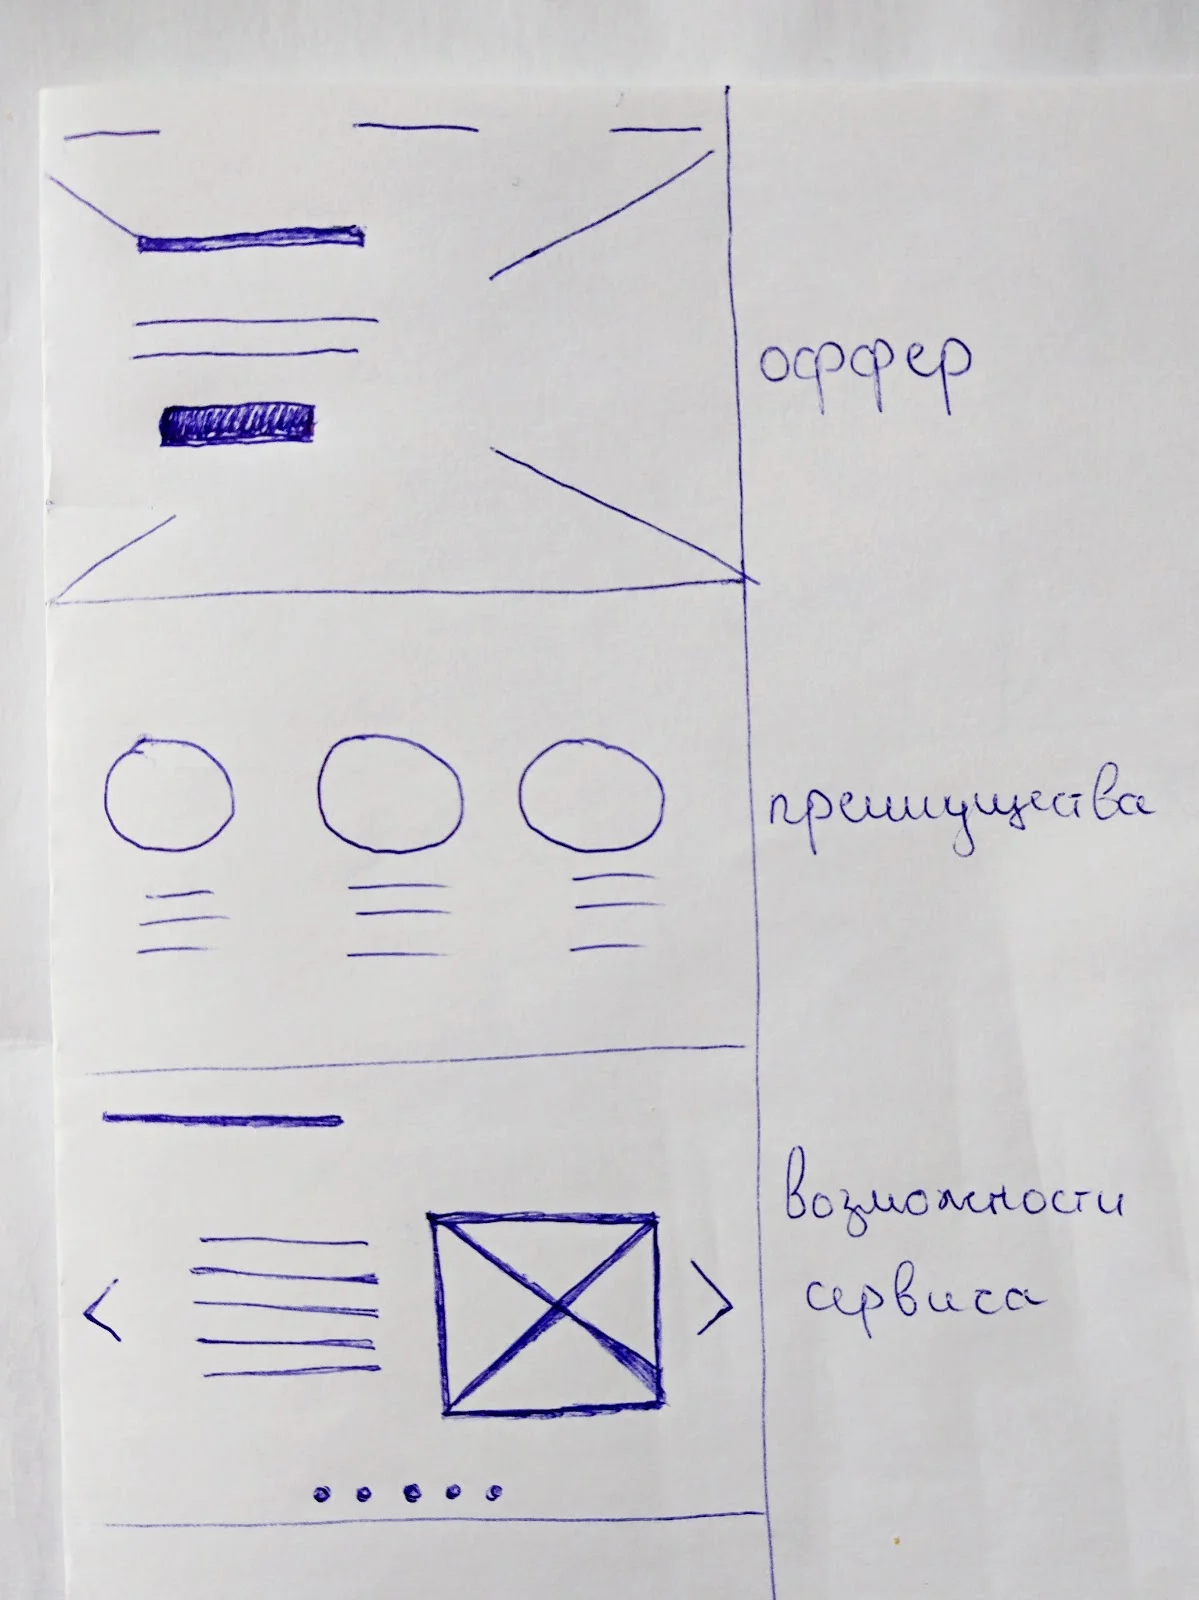 оффер
преимущества
возможности
сервиса